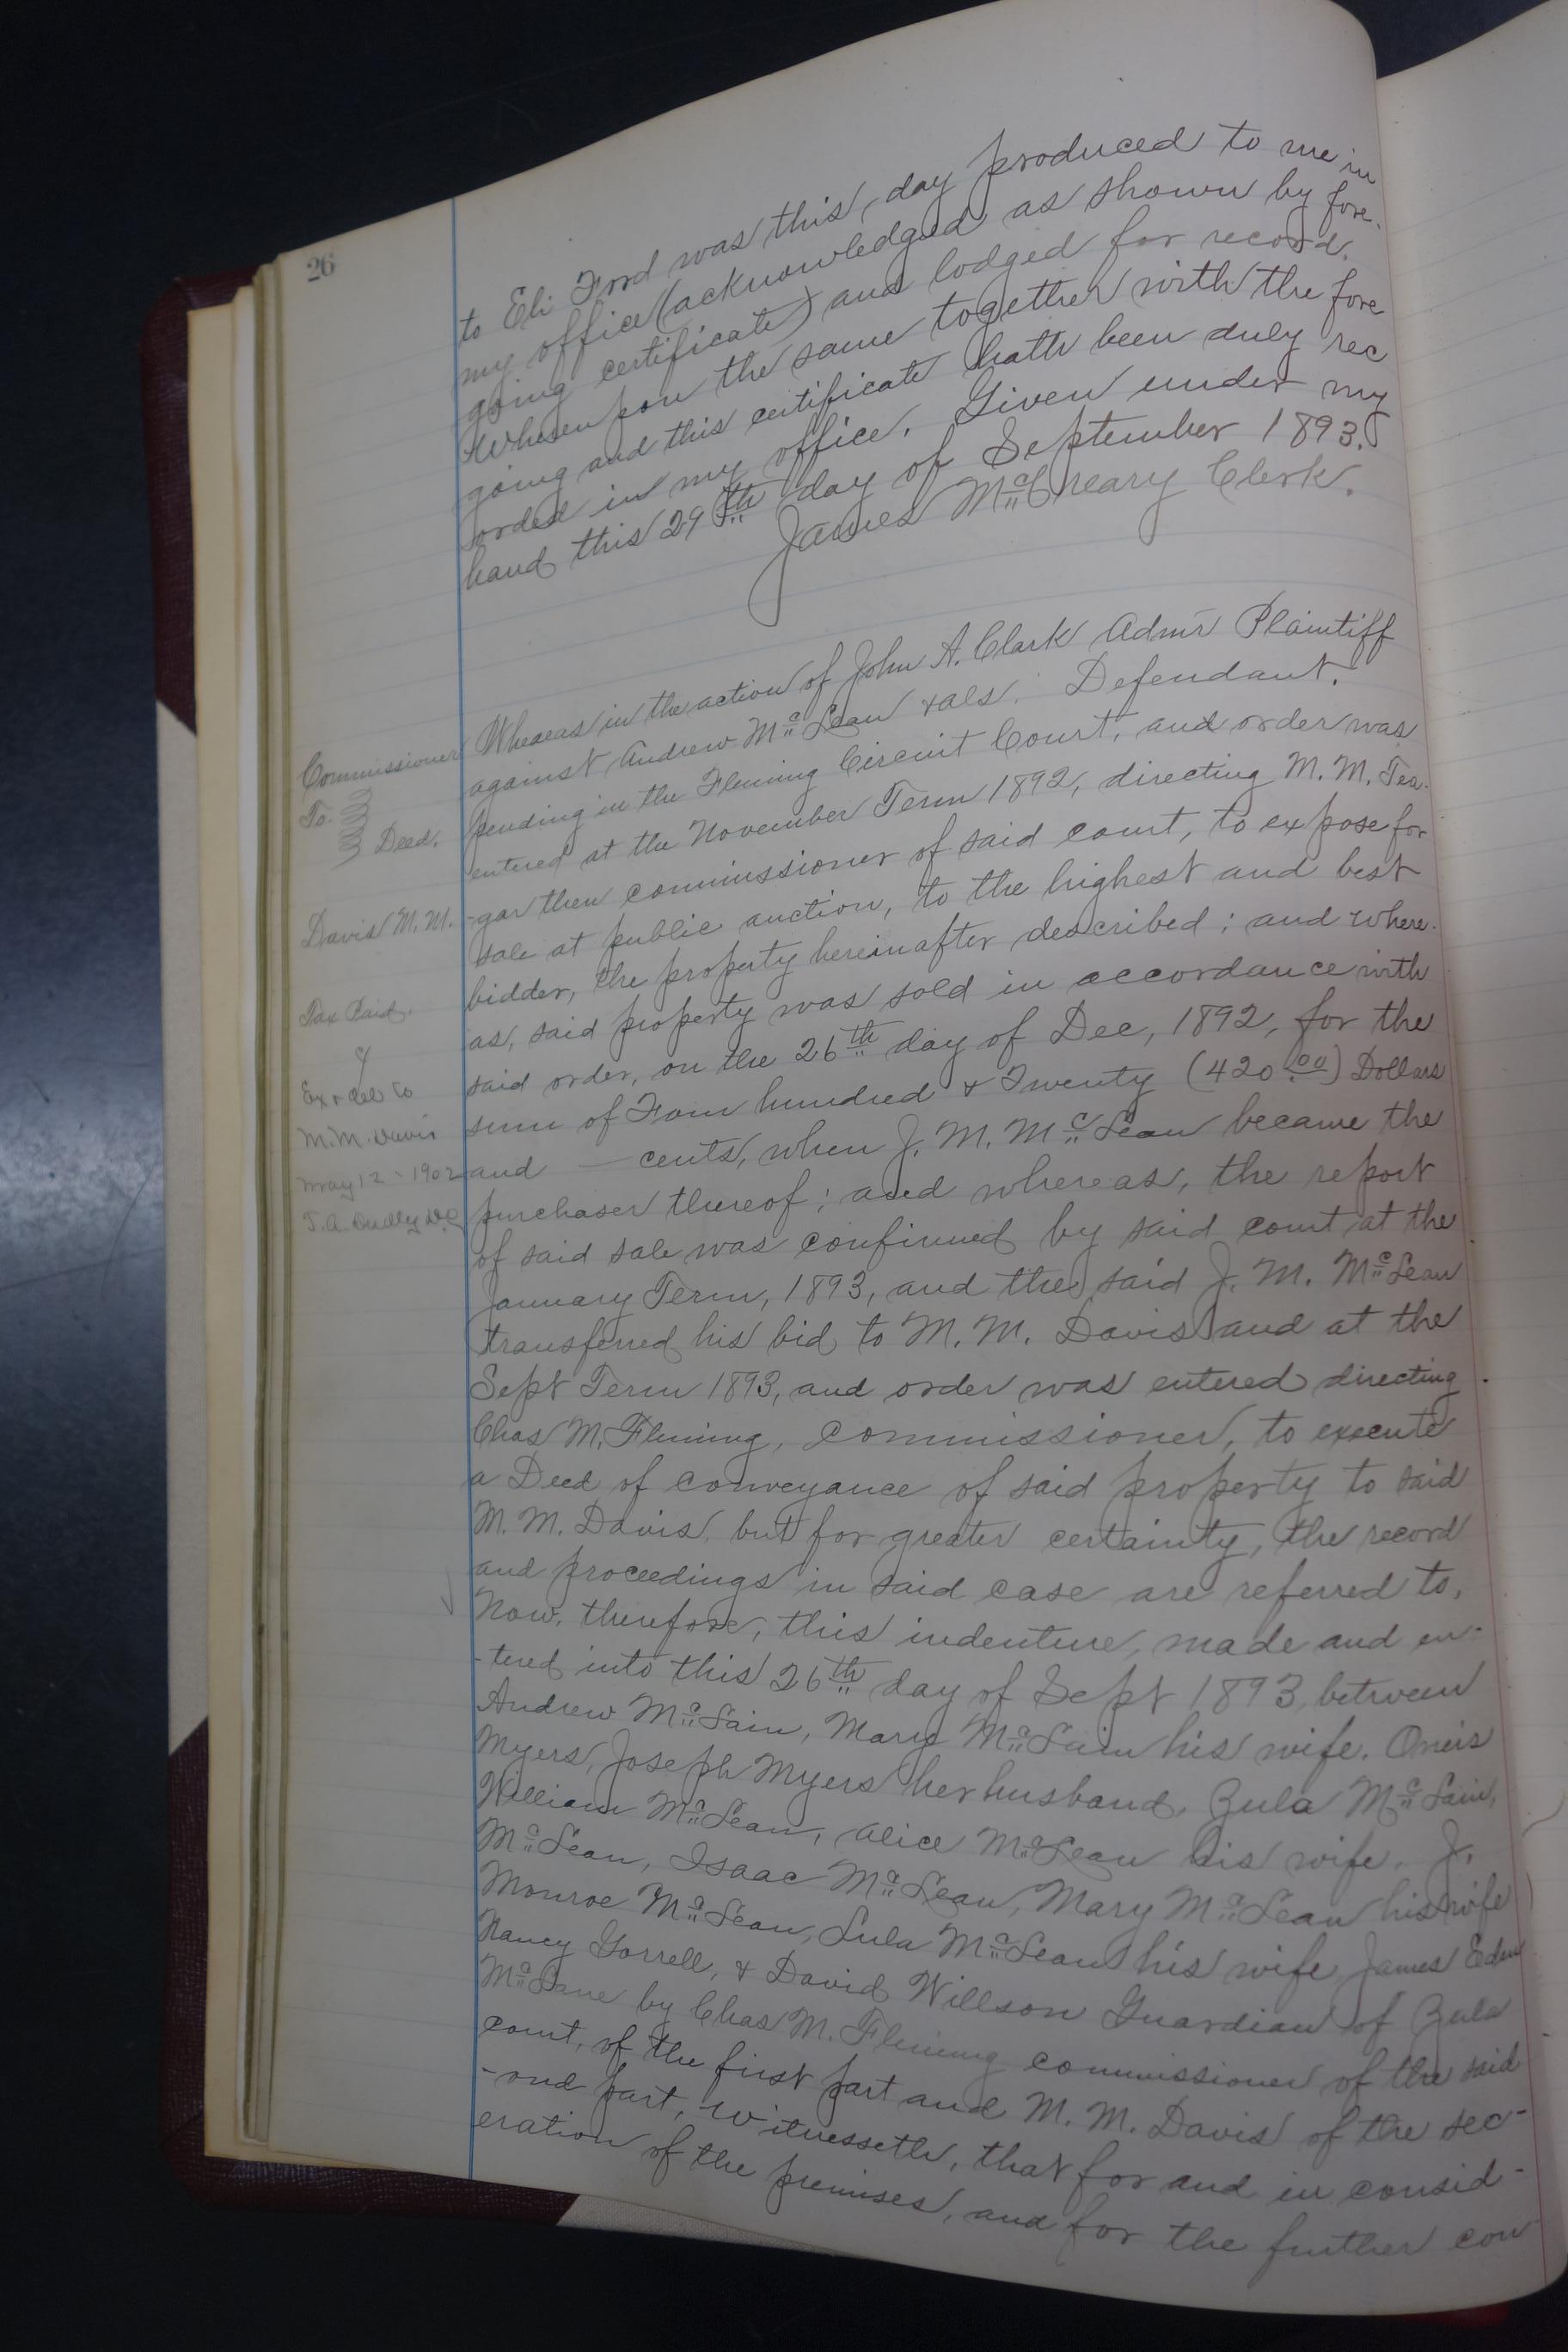 26
to Eli Ford was this day produced to me in
my office (acknowledged as shown by fore-
going certificate) and lodged for record.
Whereupon the same together with the fore
going and this certificate hath been duly rec
orded in my office. Given under my
hand this 29th day of September 1893.
James McCreary Clerk.
Commissioner
To
Deed.
Davis M. M.
Tax Paid.
Ex & del to
M. M. Davis
May 12 - 1902
T. A. Dudley D.C
Whereas in the action of John A. Clark Admr Plaintiff
against Andrew McLean & als. Defendant.
pending in the Fleming Circuit Court, and order was
entered at the November Term 1892, directing M. M. Tea-
-gar then commissioner of said court, to expose for
sale at public auction, to the highest and best
bidder, the property hereinafter described; and where-
as, said property was sold in accordance with
said order, on the 26th day of Dec, 1892, for the
sum of Four hundred & Twenty (420.00) Dollars
and — cents, when J. M. McLean became the
purchaser thereof; and whereas, the report
of said sale was confirmed by said court at the
January Term, 1893, and the said J. M. McLean
transferred his bid to M. M. Davis and at the
Sept Term 1893, and order was entered directing
Chas M. Fleming, commissioner, to execute
a Deed of conveyance of said property to said
M. M. Davis, but for greater certainty, the record
and proceedings in said case are referred to,
Now, therefore, this indenture, made and en-
-tered into this 26th day of Sept 1893, between
Andrew McLain, Mary McLain his wife. Oneis
Myers, Joseph Myers her husband, Zula McLain,
William McLean, Alice McLean his wife. J.
McLean, Isaac McLean, Mary McLean his wife
Monroe McLean, Lula McLean his wife James Edw
Nancy Gorrell, & David Willson Guardian of Zula
McLane by Chas M. Fleming commissioner of the said
court, of the first part and M. M. Davis of the sec-
-ond part, witnesseth, that for and in consid-
eration of the premises, and for the further con-